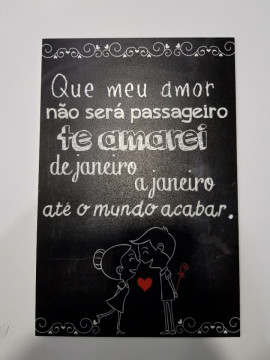 Que meu amor
não será passageiro
te amarei
de janeiro
a janeiro
até o mundo acabar.